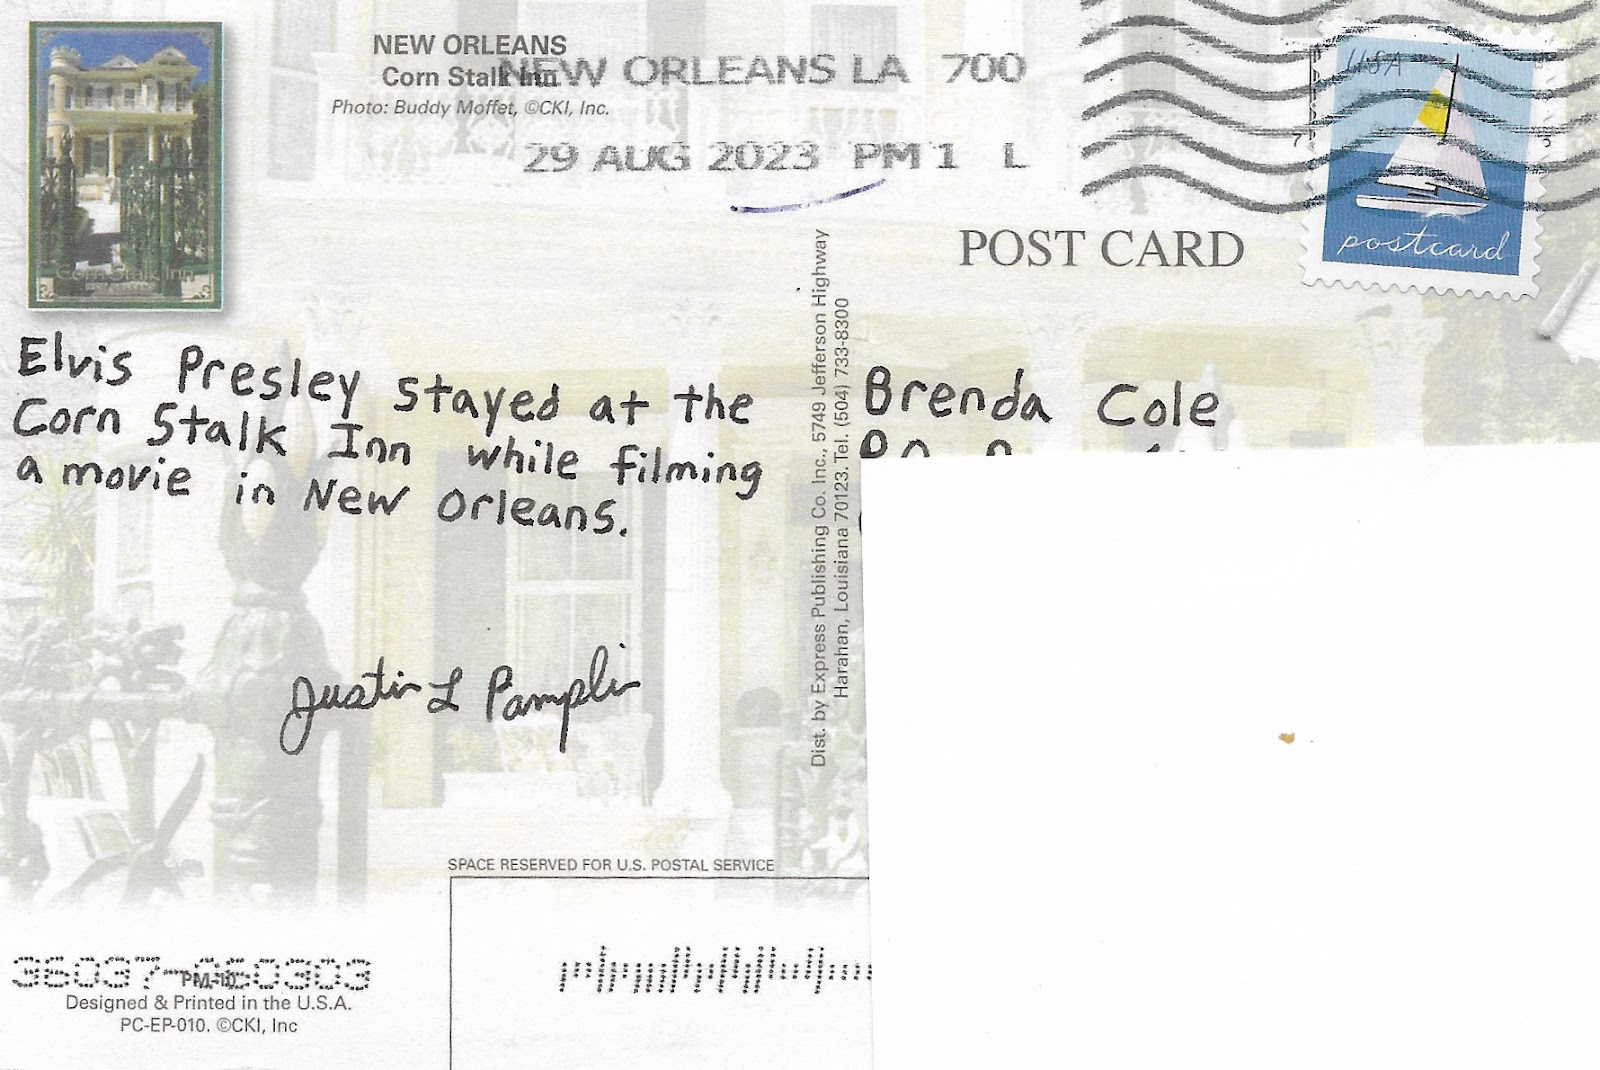 NEW ORLEANS
Corn Stalk Inn
Photo: Buddy Moffet, ©CKI, Inc.
NEW ORLEANS LA 700
29 AUG 2023 PM 1 L
USA
postcard
Corn Stalk Inn
NEW ORLEANS
POST CARD
Elvis Presley stayed at the
Corn Stalk Inn while filming
a movie in New Orleans.
Justin L Pamplin
Dist. by Express Publishing Co. Inc., 5749 Jefferson Highway
Harahan, Louisiana 70123. Tel. (504) 733-8300
Brenda Cole
SPACE RESERVED FOR U.S. POSTAL SERVICE
Designed & Printed in the U.S.A.
PC-EP-010. ©CKI, Inc